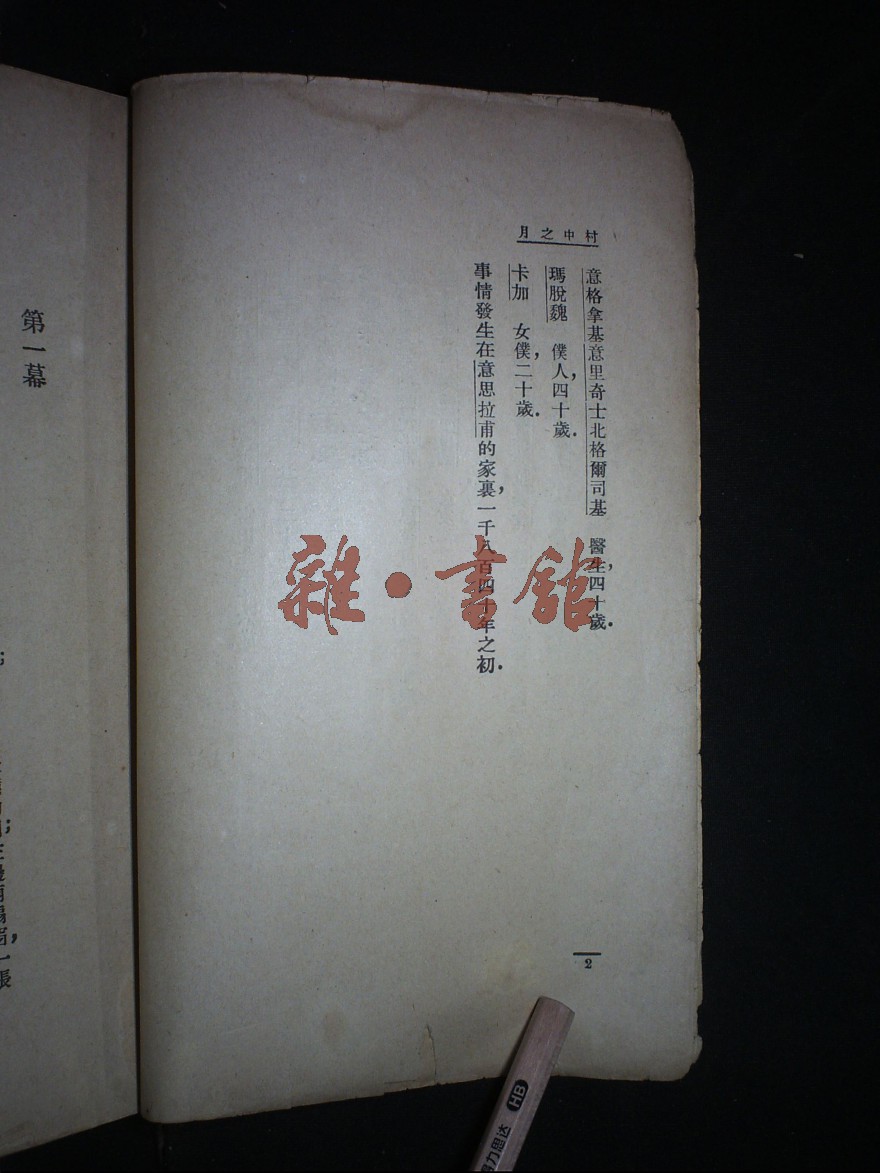 村中之月
意格拿基意里奇士北格爾司基　醫生,四十歲.
瑪脫魏　僕人,四十歲.
卡加　女僕,二十歲.
事情發生在意思拉甫的家裏,一千八百四十年之初.
2
第一幕
雜·書館
HB
力思达